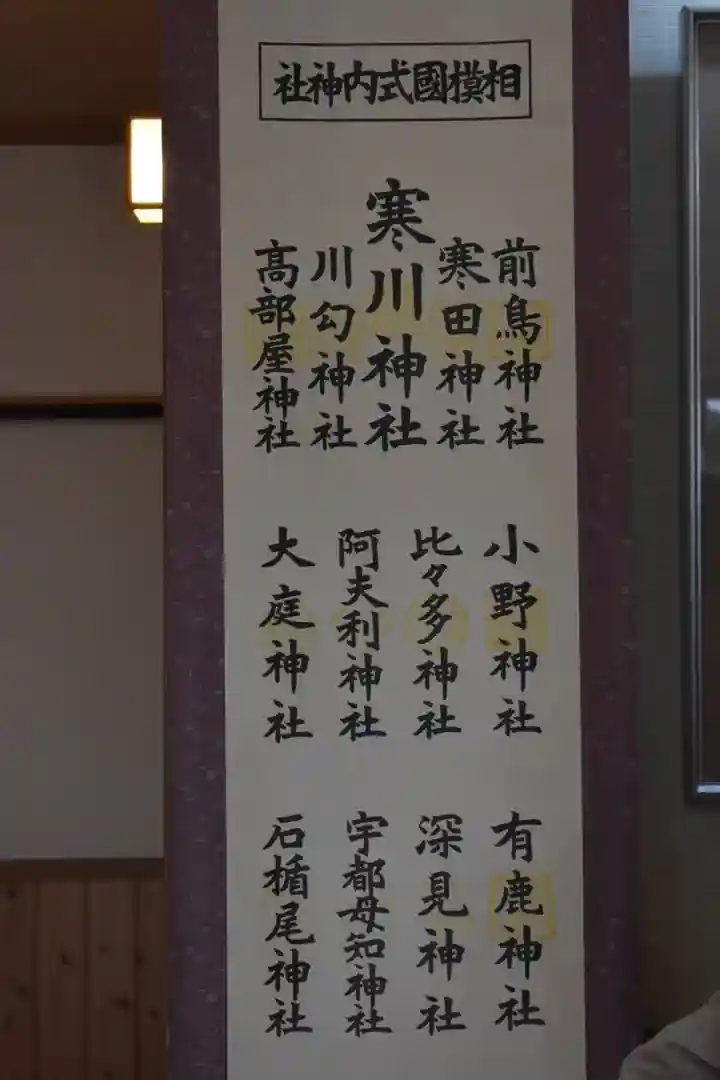 相模國式内神社
前鳥神社
寒田神社
寒川神社
川勾神社
高部屋神社
小野神社
比々多神社
阿夫利神社
大庭神社
有鹿神社
深見神社
宇都母知神社
石楯尾神社